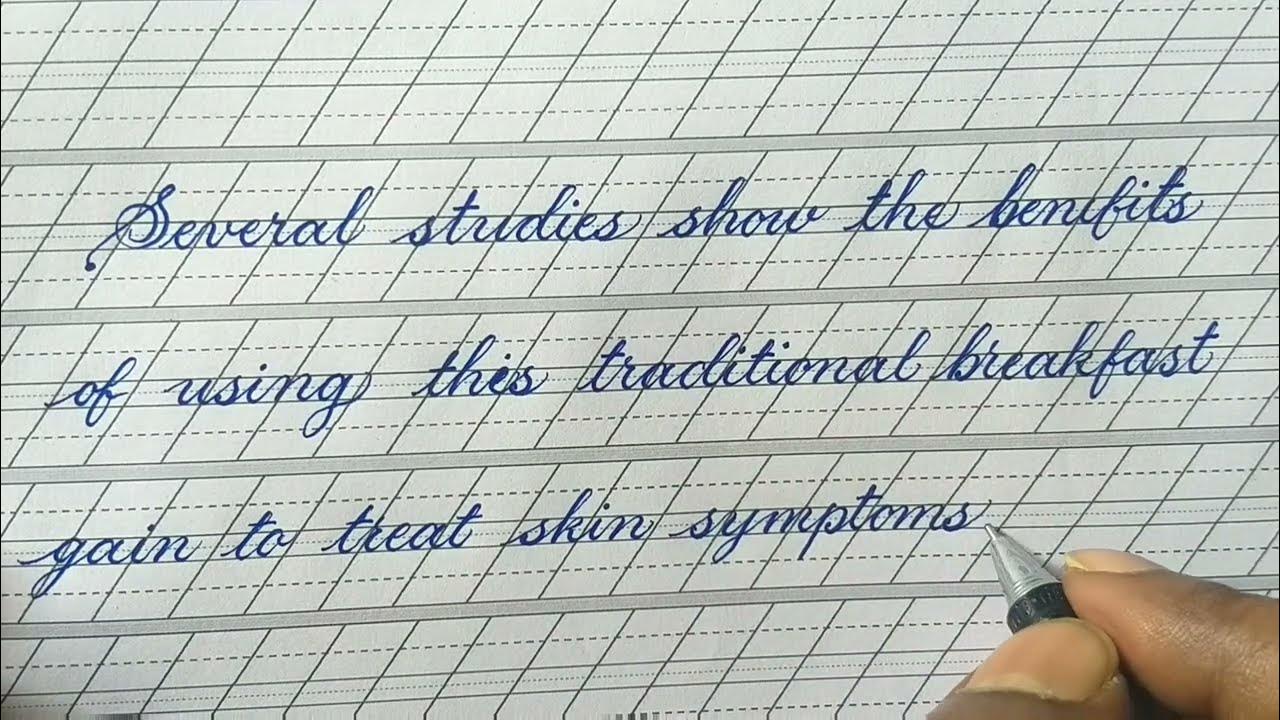 Several studies show the benifits
of using this traditional breakfast
gain to treat skin symptoms